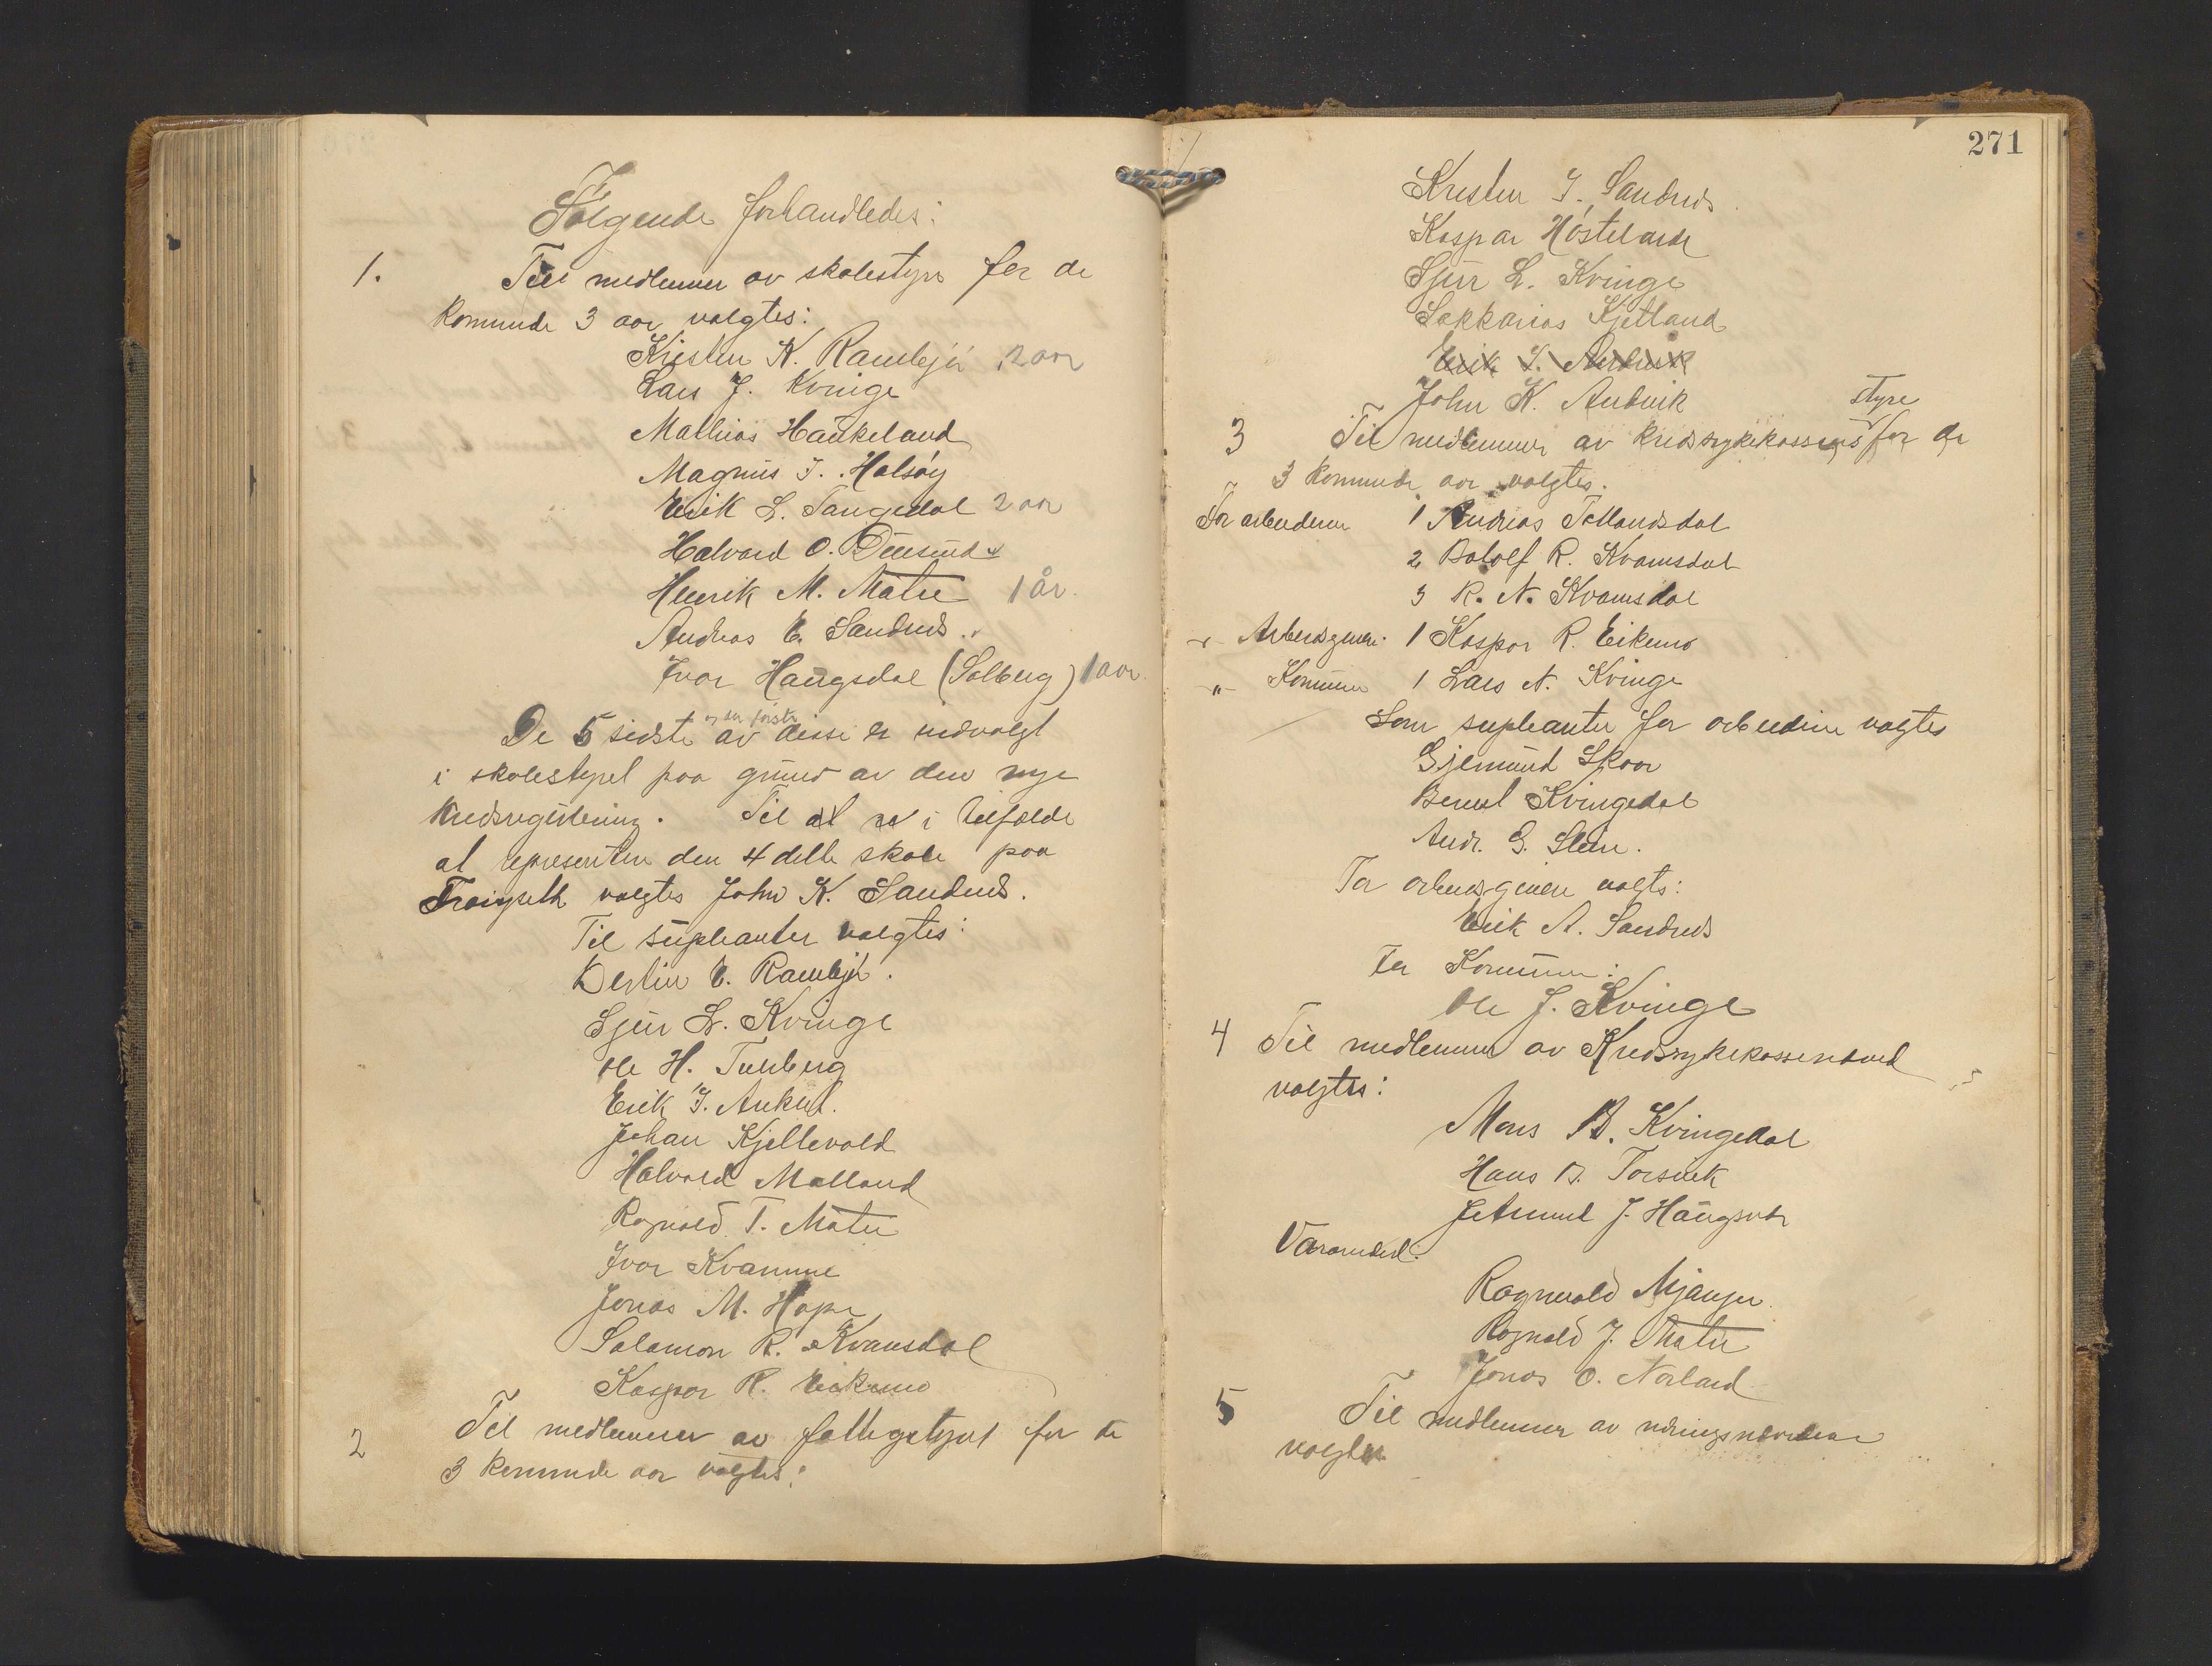 Følgende forhandledes:
1. Til medlemmer av skolestyre for de
kommende 3 aar valgtes:
Kristen K. Rambjør 2 aar
Lars J. Kvinge
Mathias Haukeland
Magnus J. Halsøy
Erik L. Tangedal 2 aar
Halvard O.
Henrik M. Matre 1 år.
Andreas E. Sandnes
Ivar Haugsdal (Solberg) 1 aar.
De 5 sidste og den første av disse er indvalgt
i skolestyret paa grund av den nye
kredsregulering. Til at i tilfælde
at representere den 4 delte skole paa
valgtes John K. Sandnes.
Til supleanter valgtes:
E. Rambjør.
Sjur L. Kvinge
Ole H.
Erik J.
Johan Kjellevold
Halvard Molland
Ragnald T. Matre
Ivar Kvamme
Jonas M. Hope
Salamon R. Kvamsdal
Kaspar R. Eikemo
2 Til medlemmer av fattigstyret for de
3 kommende aar valgtes:
271
Kristen J. Sandnes
Kaspar Høsteland
Sjur L. Kvinge
Sakkarias Kjetland
Erik S. Andvik
John K. Andvik
styre
3 Til medlemmer av kredssykekassens for de
3 kommende aar valgtes.
For arbeiderne 1 Andreas Tollandsdal
2 Botolf R. Kvamsdal
3 R. N. Kvamsdal
-"- Arbeidsgivere. 1 Kaspar R. Eikemo
-"- Kommunen 1 Lars N. Kvinge
Som supleanter for arbeiderne valgtes
Gjermund Skaar
Bernt Kvingedal
Andr. G. Stene.
For arbeidsgivere valgts:
Erik A. Sandnes
For Kommunen:
Ole J. Kvinge
4 Til medlemmer av Kredssykekassenævnd
valgtes:
Mons B. Kvingedal
Hans B. Torsvik
J. Haugsvær
Varamedl.
Ragnvald Mjanger
Ragnald J. Matre
Jonas O. Norland
5 Til medlemmer av
valgtes